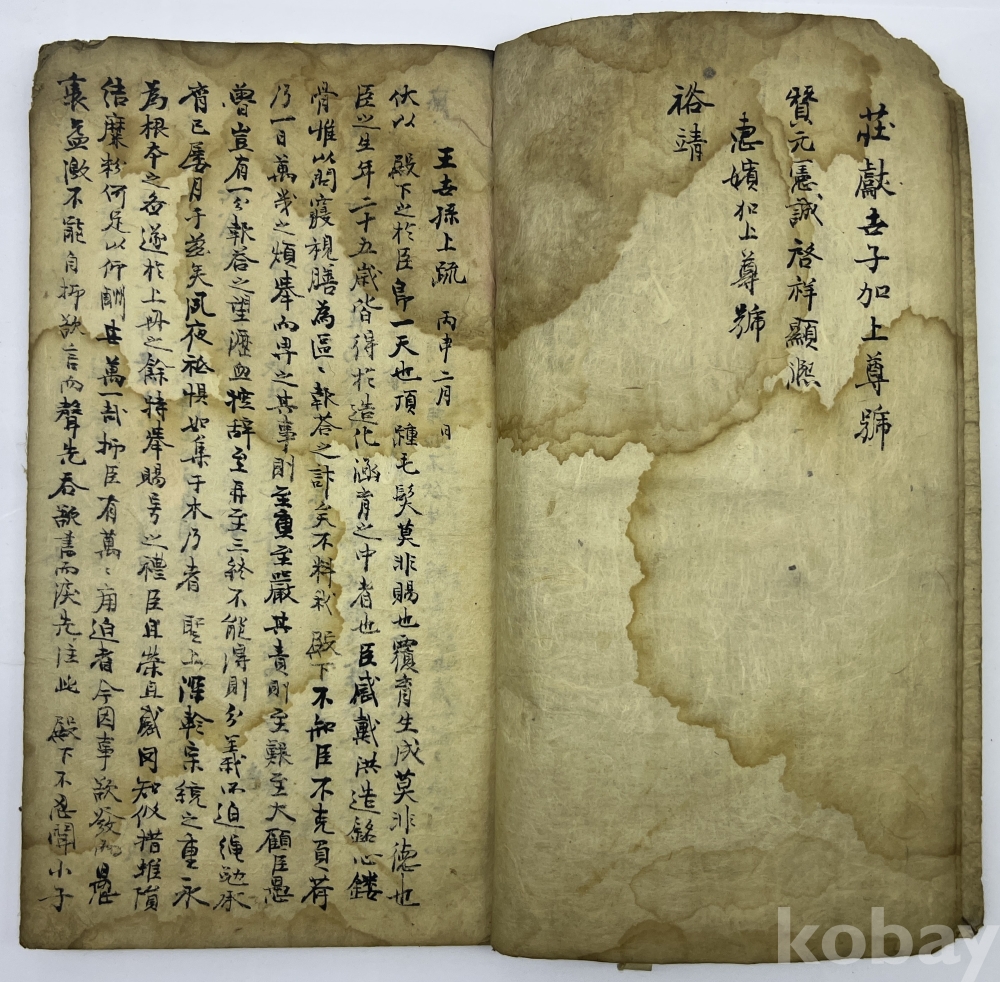 莊獻世子加上尊號
贊元憲誠啓祥顯熙
惠嬪加上尊號
裕靖
王世孫上疏 丙申二月 日
伏以 殿下之於臣卽一天也頂踵毛髮莫非賜也覆育生成莫非德也
臣之生年二十五歲皆得於造化涵育之中者也臣感戴洪造銘心鏤
骨惟以問寢視膳為區〻報答之計矣不料我 殿下不知臣不克負荷
乃一日萬幾之煩擧而畀之其事則至重至嚴其責則至艱至大顧臣愚
曾豈有一分報答之望瀝血控辭至再至三終不能得則分義所迫繩勉承
膺已屢月于玆矣夙夜祗懼如集于木乃者 聖上深軫宗統之重永
為根本之遂於上冊之餘特擧賜號之禮臣且榮且感罔知攸措雖隕
結糜粉何足以仰酬其萬一哉抑臣有萬〻痛迫者今因事欲發而
衷益激不能自抑欲言而聲先吞欲書而淚先注此 殿下不忍聞小子
kobay